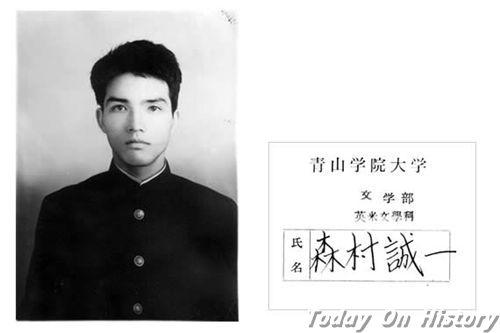 青山学院大学
文学部
英米文學科
氏名
森村誠一
Today On History